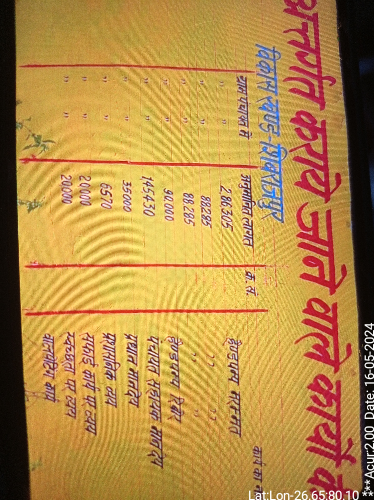 अन्तर्गत कराये जाने वाले कार्यो क
विकास खण्ड-शिवराजपुर
ग्राम पंचायत में अनुमानित लागत क्र.सं. कार्य का न
" 2,80305 हैण्डपम्प मरम्मत
" " 88285 " "
" " 88285 " "
" " 90,000 हैण्डपम्प रिबोर
" " 145430 पंचायत सहायक मानदेय
" " 35000 प्रधान मानदेय
" " 6570 प्रशासनिक व्यय
" " 20000 सफाई कार्य पर व्यय
" " 20000 स्वच्छता पर व्यय
वाटरमैन कार्य
Lat:Lon-26.65:80.10
***Acur:2.00 Date: 16-05-2024